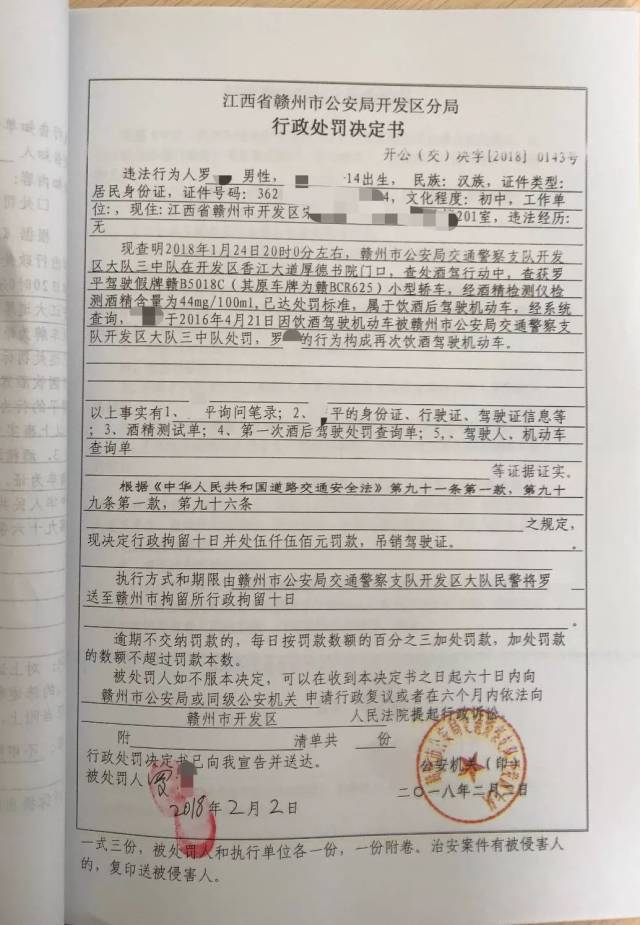 江西省赣州市公安局开发区分局
行政处罚决定书
开公（交）决字[2018] 0143号
违法行为人罗 男性， 14出生， 民族：汉族，证件类型：
居民身份证，证件号码：362 4，文化程度：初中，工作单
位：，现住：江西省赣州市开发区 201室，违法经历：
无
现查明2018年1月24日20时0分左右，赣州市公安局交通警察支队开发
区大队三中队在开发区香江大道厚德书院门口，查处酒驾行动中，查获罗
平驾驶假牌赣B5018C（其原车牌为赣BCR625）小型轿车，经酒精检测仪检
测酒精含量为44mg/100ml,已达处罚标准，属于饮酒后驾驶机动车，经系统
查询， 于2016年4月21日因饮酒驾驶机动车被赣州市公安局交通警察支
队开发区大队三中队处罚，罗 的行为构成再次饮酒驾驶机动车。
以上事实有1、 平询问笔录；2、 平的身份证、行驶证、驾驶证信息等
；3、酒精测试单；4、第一次酒后驾驶处罚查询单；5,、驾驶人、机动车
查询单
等证据证实。
根据《中华人民共和国道路交通安全法》第九十一条第一款，第九十
九条第一款，第九十六条
之规定，
现决定行政拘留十日并处伍仟伍佰元罚款，吊销驾驶证。
。
执行方式和期限由赣州市公安局交通警察支队开发区大队民警将罗
送至赣州市拘留所行政拘留十日
。
逾期不交纳罚款的，每日按罚款数额的百分之三加处罚款，加处罚款
的数额不超过罚款本数。
被处罚人如不服本决定，可以在收到本决定书之日起六十日内向
赣州市公安局或同级公安机关 申请行政复议或者在六个月内依法向
赣州市开发区 人民法院提起行政诉讼。
附 清单共 份
行政处罚决定书已向我宣告并送达。
公安机关（印）
被处罚人 罗
二〇一八年二月二日
2018年2月2日
一式三份，被处罚人和执行单位各一份，一份附卷。治安案件有被侵害人
的，复印送被侵害人。